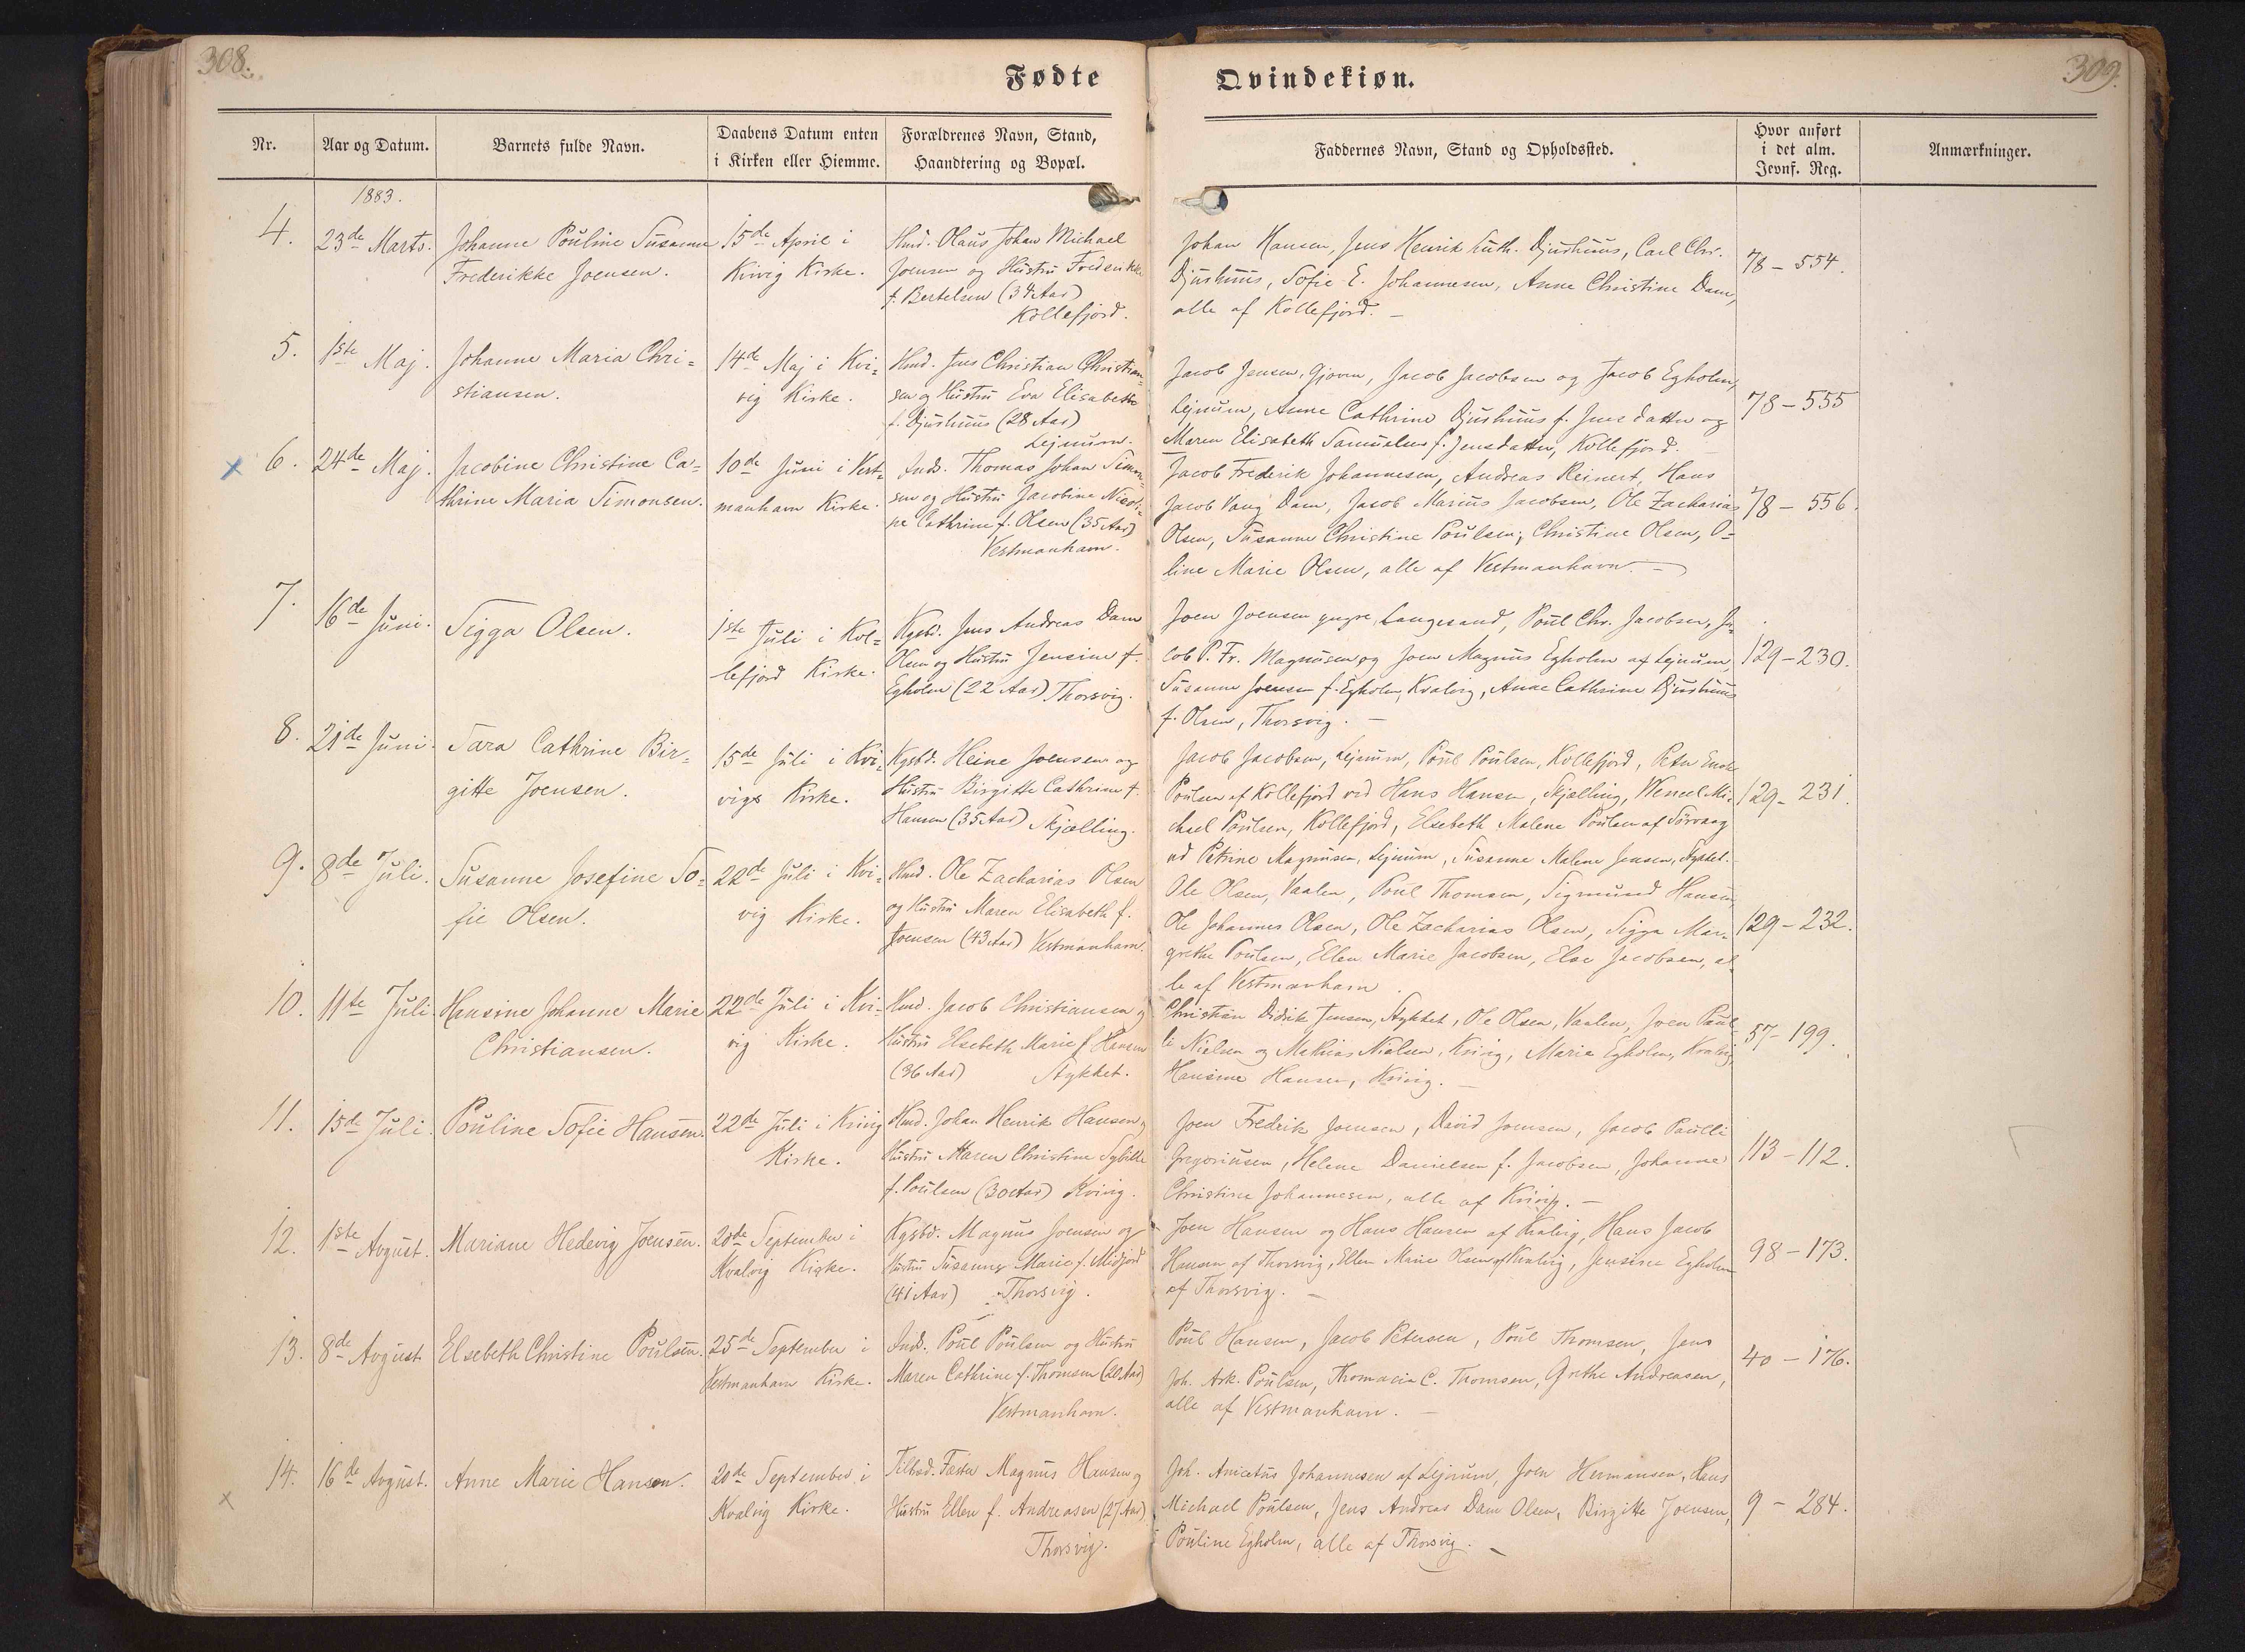 308.
309.
Fødte
Qvindekiøn.
Nr.
Aar og Datum.
Barnets fulde Navn.
Daabens Datum enten
i Kirken eller Hiemme.
Forældrenes Navn, Stand,
Haandtering og Bopæl.
Faddernes Navn, Stand og Opholdssted.
Hvor anført
i det alm.
Jevnf. Reg.
Anmærkninger.
1883.
4.
23de Marts.
Johanne Pouline Susanne
Frederikke Joensen.
15de April i
Kvivig Kirke.
Hmd. Olaus Johan Michael
Joensen og Hustru Frederikke
f. Bertelsen (34 Aar)
Kollefjord.
Johan Hansen, Jens Henrik Luth. Djurhuus, Carl Chr.
Djurhuus, Sofie E. Johannesen, Anne Christine Dam,
alle af Kollefjord. –
78 – 554.
5.
1ste Maj.
Johanne Maria Chri=
stiansen.
14de Maj i Kvi=
vig Kirke.
Hmd. Jens Christian Christian=
sen og Hustru Eva Elisabeth
f. Djurhuus (28 Aar)
Lejnum.
Jacob Jensen, Gjovn, Jacob Jacobsen og Jacob Egholm,
Lejnum, Anne Cathrine Djurhuus f. Jensdatter og
Maren Elisabeth Samuelsen f. Jensdatter, Kollefjord.
78 – 555
x 6.
24de Maj.
Jacobine Christine Ca=
thrine Maria Simonsen.
10de Juni i Vest=
manhavn Kirke.
Inds. Thomas Johan Simon=
sen og Hustru Jacobine Nicoli=
ne Cathrine f. Olsen (35 Aar)
Vestmanhavn.
Jacob Frederik Johannesen, Andreas Reinert, Hans
Jacob Vang Dam, Jacob Marius Jacobsen, Ole Zacharias
Olsen, Susanne Christine Poulsen, Christine Olsen, O=
line Marie Olsen, alle af Vestmanhavn. –
78 – 556.
7.
16de Juni.
Sigga Olsen.
1ste Juli i Kol=
lefjord Kirke.
Kgsbd. Jens Andreas Dam
Olsen og Hustru Jensine f.
Egholm (22 Aar) Thorsvig.
Joen Joensen yngre, Langesand, Poul Chr. Jacobsen, Ja=
cob P. Fr. Magnusen og Joen Magnus Egholm af Lejnum,
Susanne Joensen f. Egholm, Kvalvig, Anne Cathrine Djurhuus
f. Olsen, Thorsvig. –
129 – 230.
8.
21de Juni.
Sara Cathrine Bir=
gitte Joensen.
15de Juli i Kvi=
vigs Kirke.
Kgsbd. Heine Joensen og
Hustru Birgitte Cathrine f.
Hansen (35 Aar) Skjælling.
Jacob Jacobsen, Lejnum, Poul Poulsen, Kollefjord, Peter
Poulsen af Kollefjord ved Hans Hansen, Skjælling, Wencel Mi=
chael Poulsen, Kollefjord, Elsebeth Malene Poulsen af Sörvaag
ved Petrine Magnusen, Lejnum, Susanne Malene Jensen, Stykket.
129 – 231.
9.
8de Juli.
Susanne Josefine So=
fie Olsen.
22de Juli i Kvi=
vig Kirke.
Hmd. Ole Zacharias Olsen
og Hustru Maren Elisabeth f.
Joensen (43 Aar) Vestmanhavn.
Ole Olsen, Vaalen, Poul Thomsen, Sigmund Hansen,
Ole Johannes Olsen, Ole Zacharias Olsen, Sigga Mar=
grethe Poulsen, Ellen Marie Jacobsen, Else Jacobsen, al=
le af Vestmanhavn.
129 – 232.
10.
11te Juli.
Hansine Johanne Marie
Christiansen.
22de Juli i Kvi=
vig Kirke.
Hmd. Jacob Christiansen og
Hustru Elsebeth Marie f. Hansen
(36 Aar) Stykket.
Christian Didrik Jensen, Stykket, Ole Olsen, Vaalen, Joen Paul=
li Nielsen og Mathias Nielsen, Kvivig, Maria Egholm, Kvalvig,
Hansine Hansen, Kvivig. –
57 – 199.
11.
15de Juli.
Pouline Sofie Hansen.
22de Juli i Kvivig
Kirke.
Hmd. Johan Henrik Hansen og
Hustru Maren Christine Sybille
f. Poulsen (30 Aar) Kvivig.
Joen Fredrik Joensen, David Joensen, Jacob Paulli
Gregoriusen, Helene Danielsen f. Jacobsen, Johanne
Christine Johannesen, alle af Kvivig. –
113 – 112.
12.
1ste Avgust.
Mariane Hedevig Joensen.
20de September i
Kvalvig Kirke.
Kgsbd. Magnus Joensen og
Hustru Susanne Marie f. Midjord
(41 Aar) Thorsvig.
Joen Hansen og Hans Hansen af Kvalvig, Hans Jacob
Hansen af Thorsvig, Ellen Marie Olsen af Kvalvig, Jensine Egholm
af Thorsvig. –
98 – 173.
13.
8de Avgust
Elsebeth Christine Poulsen.
25de September i
Vestmanhavn Kirke.
Inds. Poul Poulsen og Hustru
Maren Cathrine f. Thomsen (20 Aar)
Vestmanhavn.
Poul Hansen, Jacob Petersen, Poul Thomsen, Jens
Joh. Ark. Poulsen, Thomacia C. Thomsen, Grethe Andreasen,
alle af Vestmanhavn. –
40 – 176.
x 14.
16de Avgust.
Anne Marie Hansen.
20de September i
Kvalvig Kirke.
Magnus Hansen og
Hustru Ellen f. Andreasen (27 Aar)
Thorsvig.
Joh. Anicetus Johannesen af Lejnum, Joen Hermansen, Hans
Michael Poulsen, Jens Andreas Dam Olsen, Birgitte Joensen,
Pouline Egholm, alle af Thorsvig. –
9 – 284.